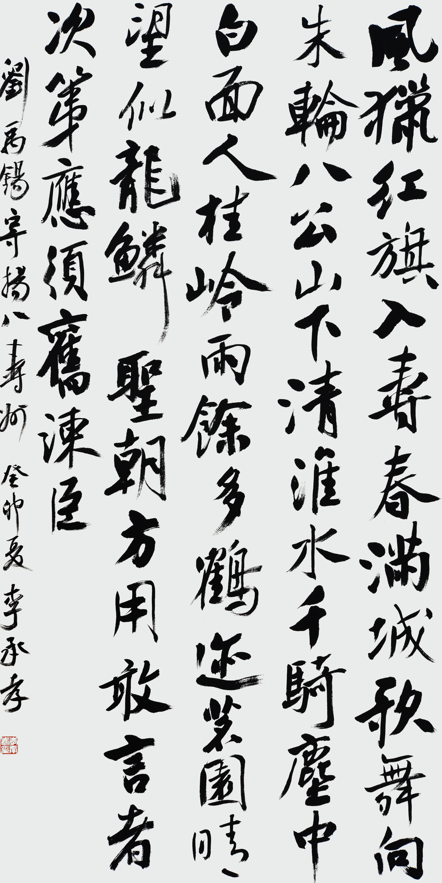 風獵紅旗入壽春滿城歌舞向
朱輪八公山下清淮水千騎塵中
白面人桂嶺雨餘多鶴迹茗園晴
望似龍鱗 聖朝方用敢言者
次第應須舊諫臣
劉禹錫寄揚八壽州 癸卯夏 李承孝